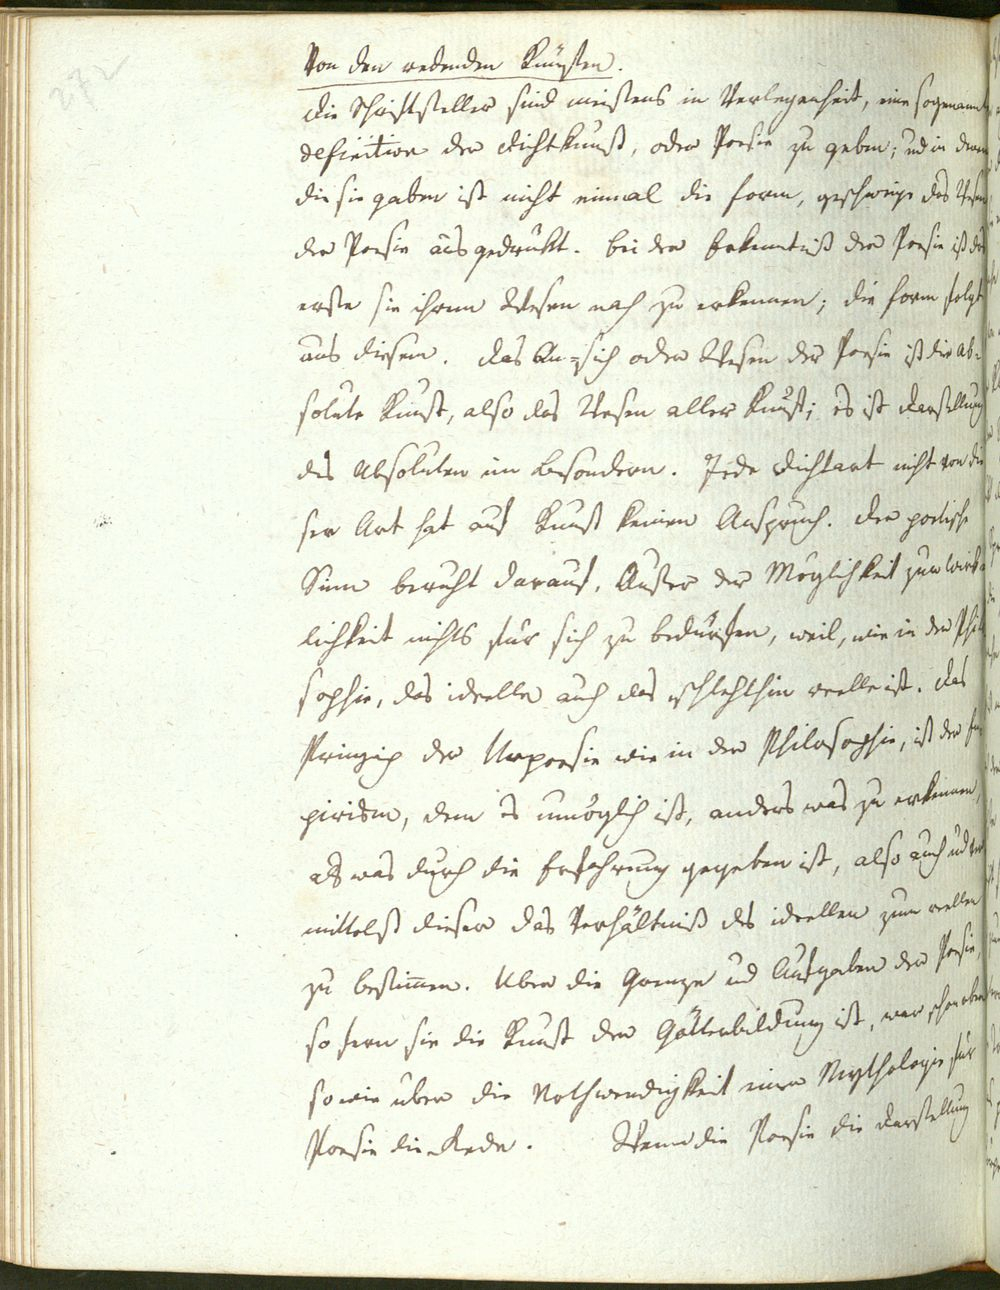 272
Von den redenden Künsten.
Die Schriftsteller sind meistens in Verlegenheit, eine sogenannte
definition der Dichtkunst, oder Poesie zu geben; ud in denen
die sie gaben ist nicht einmal die form, geschweige das Wesen
der Poesie ausgedrükt. Bei der Erkenntniß der Poesie ist das
erste sie ihrem Wesen nach zu erkennen; die form folgt
aus diesem. Das An-sich oder Wesen der Poesie ist die Ab-
solute Kunst, also das Wesen aller Kunst; es ist Darstellung
des Absoluten im Besondern. Jede Dichtart nicht von die
ser Art hat auf Kunst keinen Anspruch. Der poetische
Sinn beruht darauf, Außer der Möglichkeit zur Wirk
lichkeit nichts für sich zu bedürfen, weil, wie in der Philo
sophie, das ideelle auch das schlechthin reelle ist. Das
Prinzip der Unpoesie wie in der Philosophie, ist der Em
pirism, dem es unmöglich ist, anders was zu erkennen,
als was durch die Erfahrung gegeben ist, also auch ud ver
mittelst dieser das Verhältniß des ideellen zum reellen
zu bestimmen. Uber die Grenze ud Aufgaben der Poesie,
so fern sie die Kunst der Götterbildung ist, war schon oben
sowie über die Nothwendigkeit einer Mythologie für
Poesie die Rede. Wenn die Poesie die Darstellung